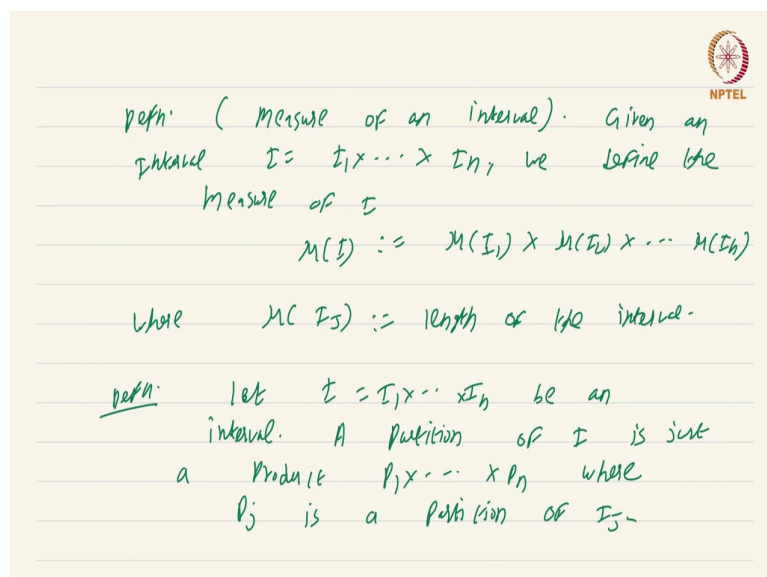 NPTEL
Defn. (Measure of an interval). Given an
Interval I = I₁ x ... x Iₙ, we define the
measure of I
μ(I) := μ(I₁) x μ(I₂) x ... μ(Iₙ)
where μ(I_J) := length of the interval.
Defn. Let I = I₁ x ... x Iₙ be an
interval. A Partition of I is just
a Product P₁ x ... x Pₙ where
P_j is a Partition of I_j.